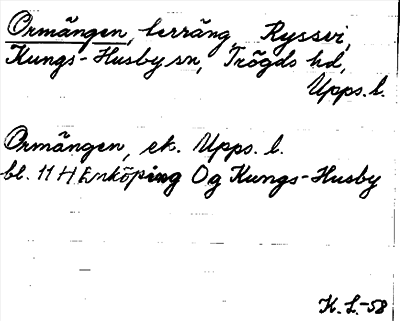 Ormängen, lerräng, Ryssvi,
Kungs-Husby sn, Trögds hd,
Upps. l.
Ormängen, ek. Upps. l.
bl. 11 H Enköping Og Kungs-Husby
K. L.-58